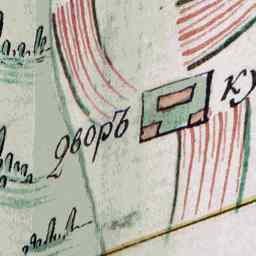 дворъ ку